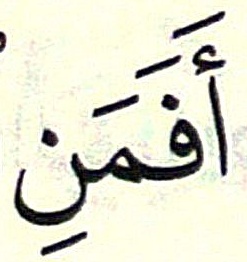 أَفَمَنِ